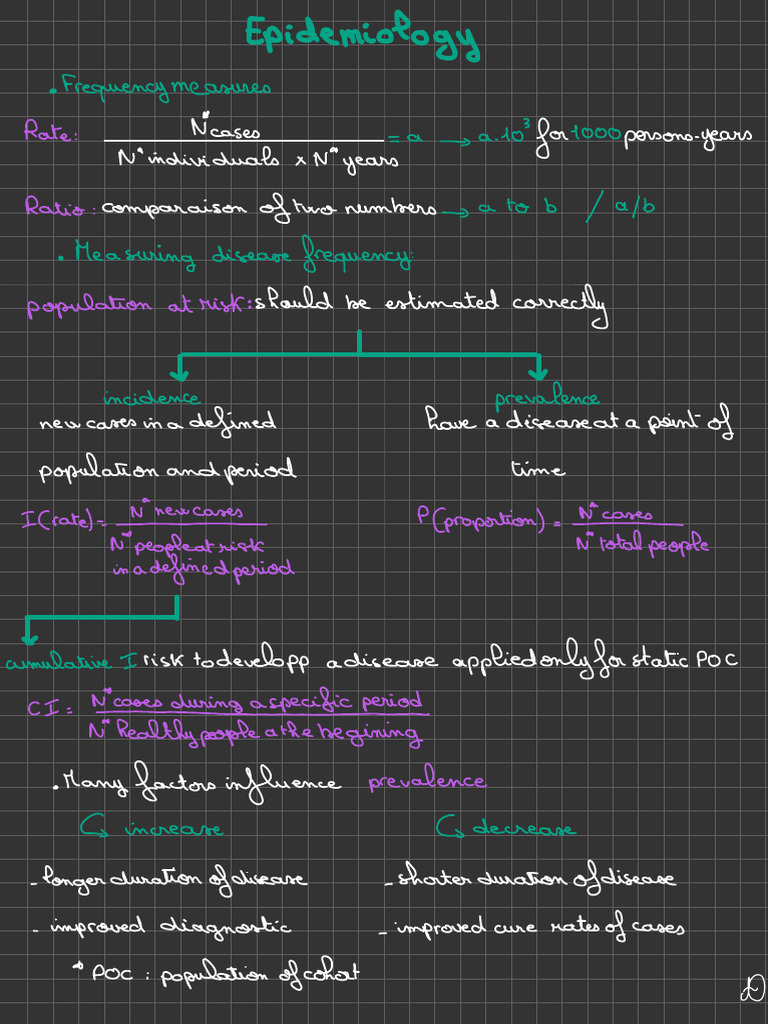 Epidemiology
. Frequency measures
Rate: N° cases / N° individuals x N° years = a → a.10³ for 1000 persons-years
Ratio: comparaison of two numbers → a to b / a/b
. Measuring disease frequency:
population at risk: should be estimated correctly
incidence
new cases in a defined
population and period
I(rate) = N° new cases / N° people at risk
in a defined period
prevalence
have a disease at a point of
time
P(proportion) = N° cases / N° total people
cumulative I risk to developp a disease applied only for static POC
CI = N° cases during a specific period / N° healthy people athe begining
. Many factors influence prevalence
↪ increase
- longer duration of disease
- improved diagnostic
↪ decrease
- shorter duration of disease
- improved cure rates of cases
* POC : population of cohort